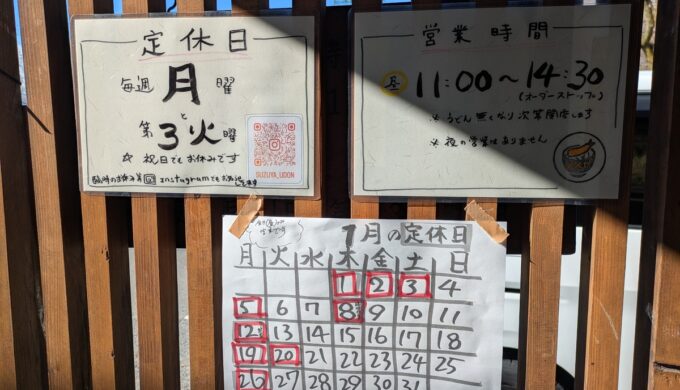 定休日
毎週 月曜
と
第3火曜
☆ 祝日でもお休みです
SUZUYA_UDON
営業時間
昼 11:00〜14:30
(オーダーストップ)
※うどん無くなり次第閉店します
※夜の営業はありません
1月の定休日
月 火 水 木 金 土 日
1 2 3 4
5 6 7 8 9 10 11
12 13 14 15 16 17 18
19 20 21 22 23 24 25
26 27 28 29 30 31